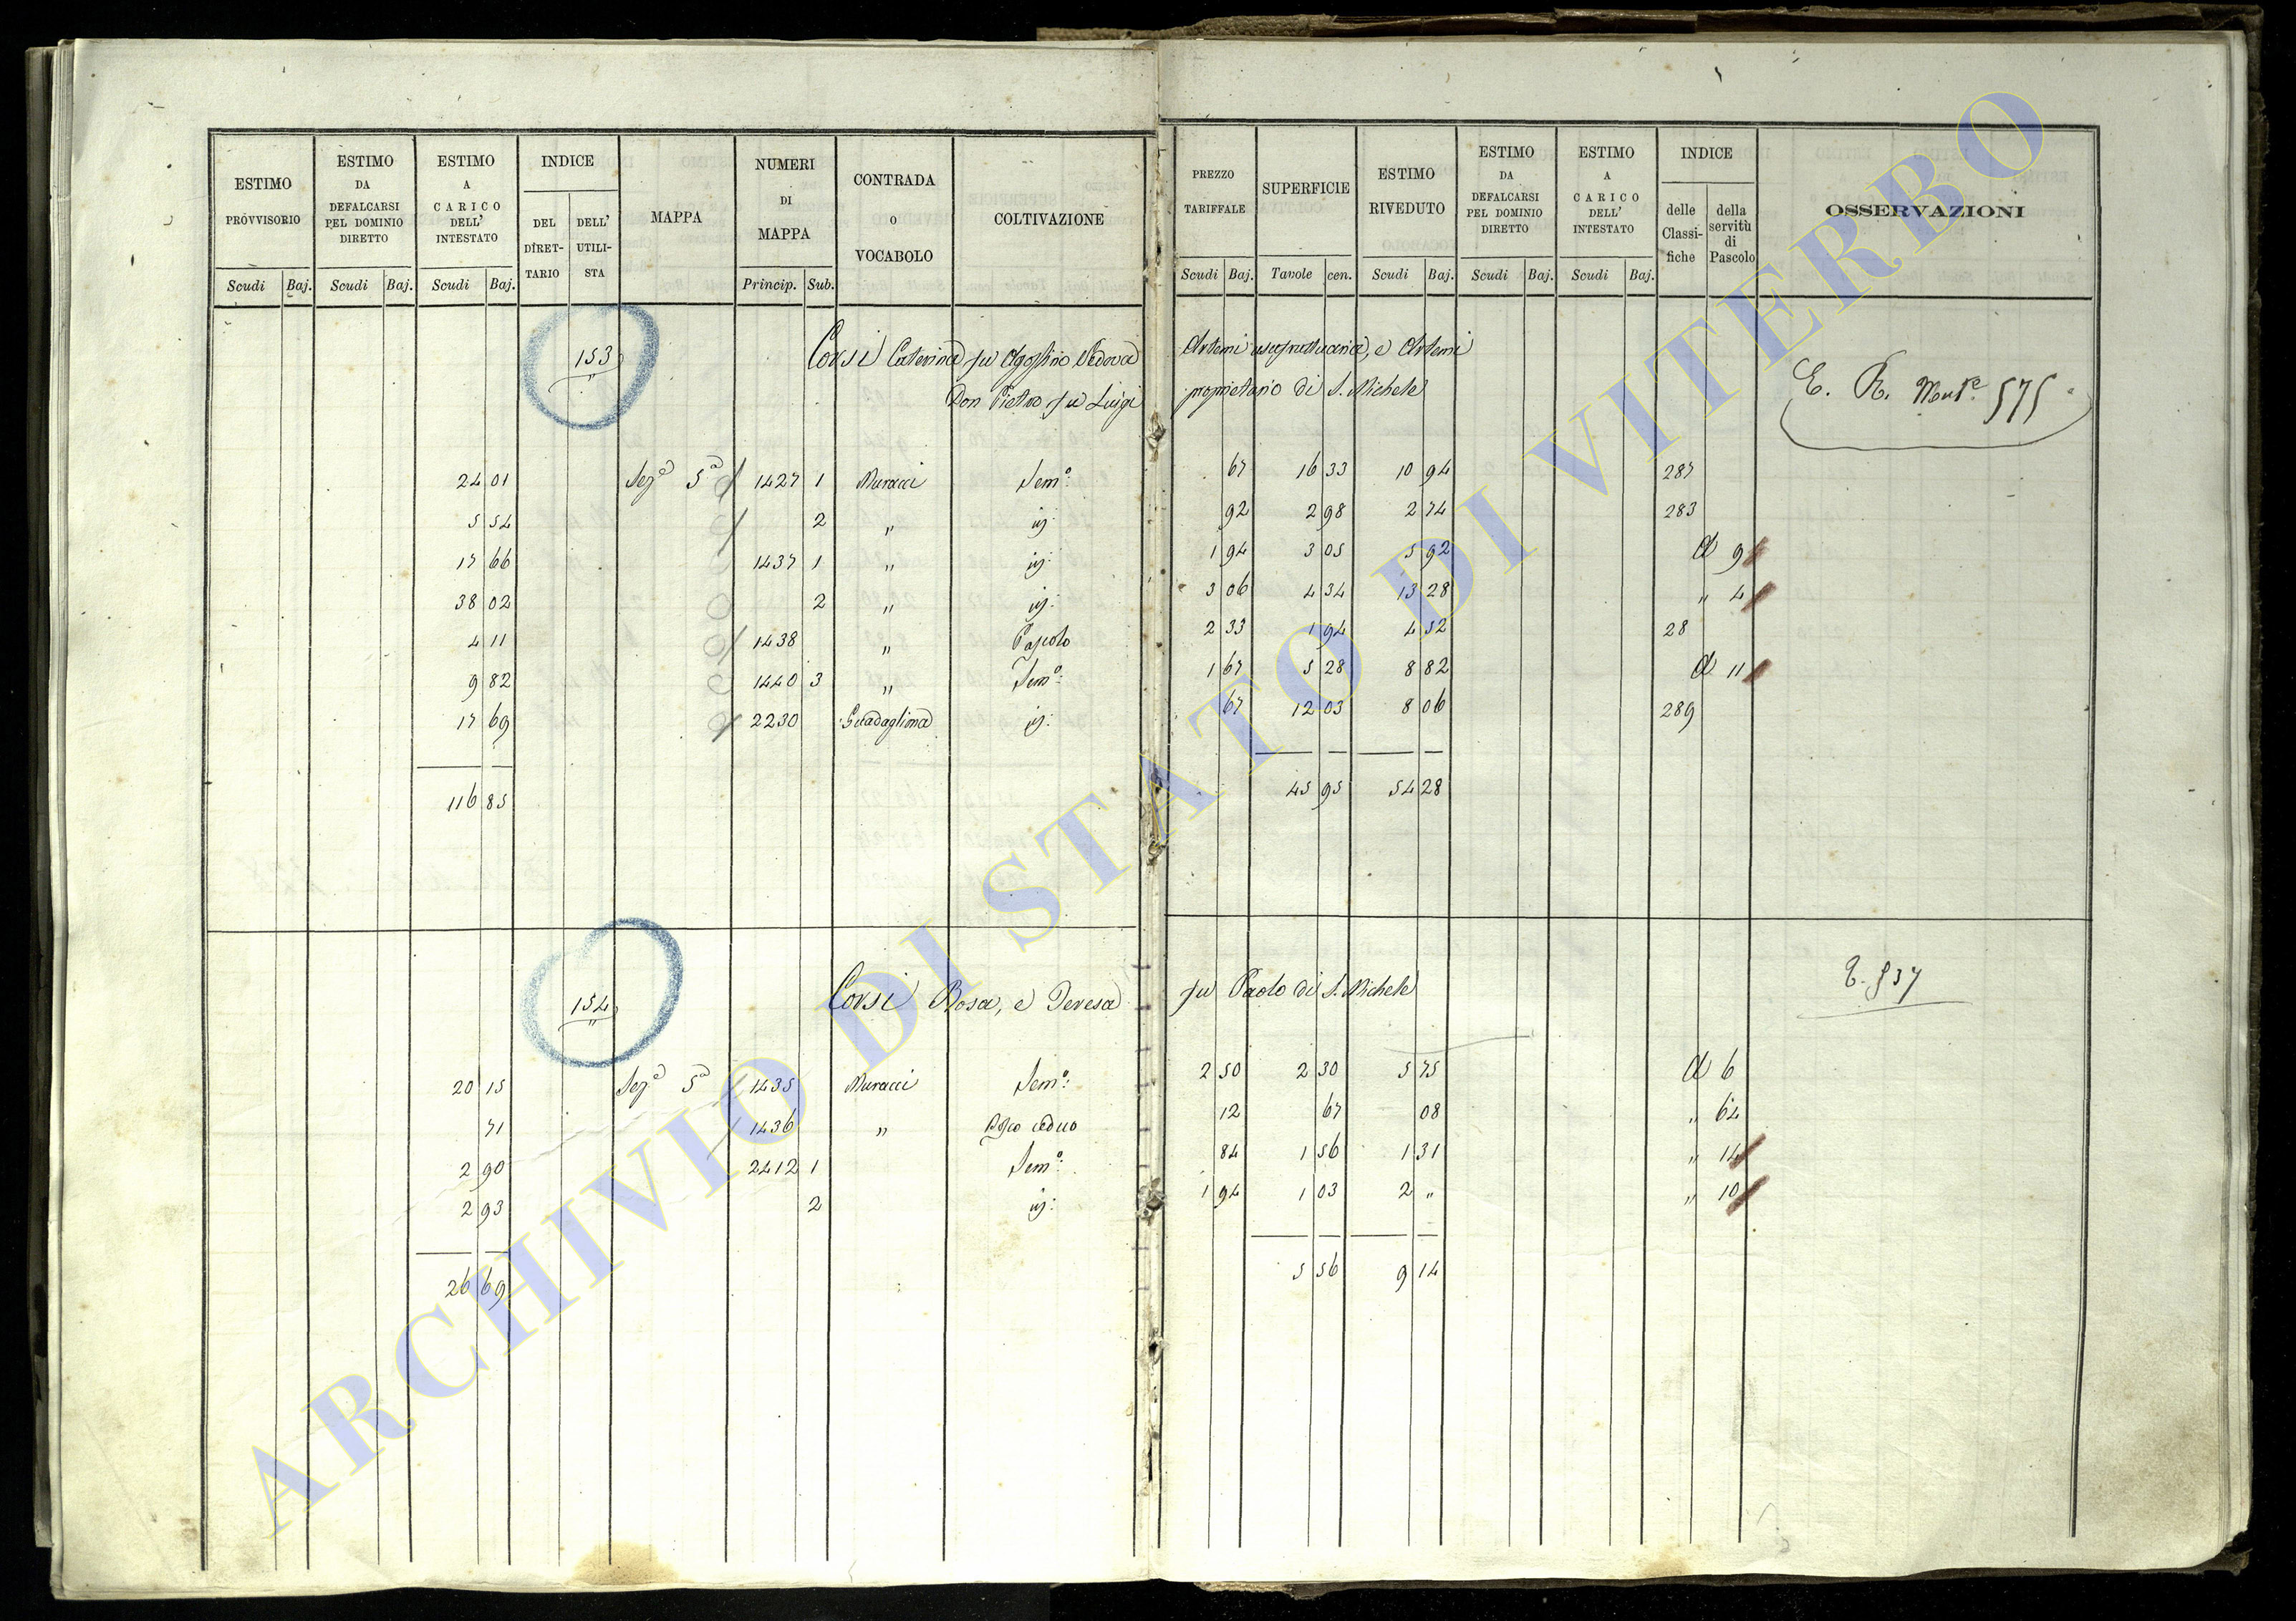 ESTIMO PROVVISORIO Scudi Baj.
ESTIMO DA DEFALCARSI PEL DOMINIO DIRETTO Scudi Baj.
ESTIMO A CARICO DELL' INTESTATO Scudi Baj.
INDICE DEL DIRET- TARIO DELL' UTILI- STA
MAPPA
NUMERI DI MAPPA Princip. Sub.
CONTRADA O VOCABOLO
COLTIVAZIONE
PREZZO TARIFFALE Scudi Baj.
SUPERFICIE Tavole cen.
ESTIMO RIVEDUTO Scudi Baj.
ESTIMO DA DEFALCARSI PEL DOMINIO DIRETTO Scudi Baj.
ESTIMO A CARICO DELL' INTESTATO Scudi Baj.
INDICE delle Classi- fiche della servitù di Pascolo
OSSERVAZIONI
153 Corsi Caterina fu Agostino Vedova Artemi usufruttuaria, e Artemi
Don Pietro fu Luigi proprietario di S. Michele
E. R. 575
24 01 Sez.e 5a 1427 1 Muracci Sem.o 67 16 33 10 94 287
5 54 2 " id: 92 2 98 2 74 283
17 66 1437 1 " id: 1 94 3 05 5 92 A 9
38 02 2 " id: 3 06 4 34 13 28 " 4
4 11 1438 " Pascolo 2 33 1 94 4 52 28
9 82 1440 3 " Sem.o 1 67 5 28 8 82 A 11
17 69 2230 Guadaglima id: 67 12 03 8 06 289
116 85 45 95 54 28
154 Corsi Rosa, e Teresa fu Paolo di S. Michele
20 15 Sez.e 5a 1435 Muracci Sem.o 2 50 2 30 5 75 A 6
71 1436 " Bosco ceduo 12 67 08 " 64
2 90 2412 1 Sem.o 84 1 56 1 31 " 14
2 93 2 id: 1 94 1 03 2 " " 10
26 69 5 56 9 14
ARCHIVIO DI STATO DI VITERBO